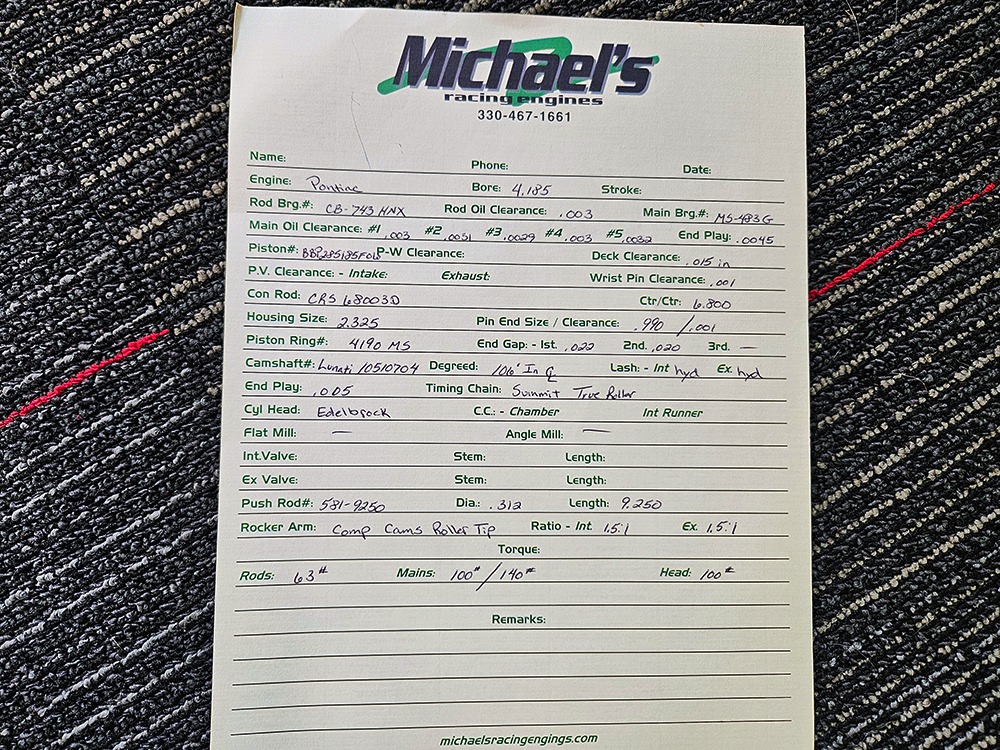 Michael's
racing engines
330-467-1661
Name: Phone: Date:
Engine: Pontiac Bore: 4.185 Stroke:
Rod Brg.#: CB-743 HNX Rod Oil Clearance: .003 Main Brg.#: MS-483G
Main Oil Clearance: #1 .003 #2 .0031 #3 .0029 #4 .003 #5 .0032 End Play: .0045
Piston#: P-W Clearance: Deck Clearance: .015 in
P.V. Clearance: - Intake: Exhaust: Wrist Pin Clearance: .001
Con Rod: CRS 68003D Ctr/Ctr: 6.800
Housing Size: 2.325 Pin End Size / Clearance: .990 / .001
Piston Ring#: 4190 MS End Gap: - 1st. .022 2nd. .020 3rd. —
Camshaft#: Lunati 10510704 Degreed: 106° In ℄ Lash: - Int hyd Ex. hyd
End Play: .005 Timing Chain: Summit True Roller
Cyl Head: Edelbrock C.C.: - Chamber Int Runner
Flat Mill: — Angle Mill: —
Int.Valve: Stem: Length:
Ex Valve: Stem: Length:
Push Rod#: 581-9250 Dia.: .312 Length: 9.250
Rocker Arm: Comp Cams Roller Tip Ratio - Int. 1.5:1 Ex. 1.5:1
Torque:
Rods: 63# Mains: 100# / 140# Head: 100#
Remarks:
michaelsracingengings.com